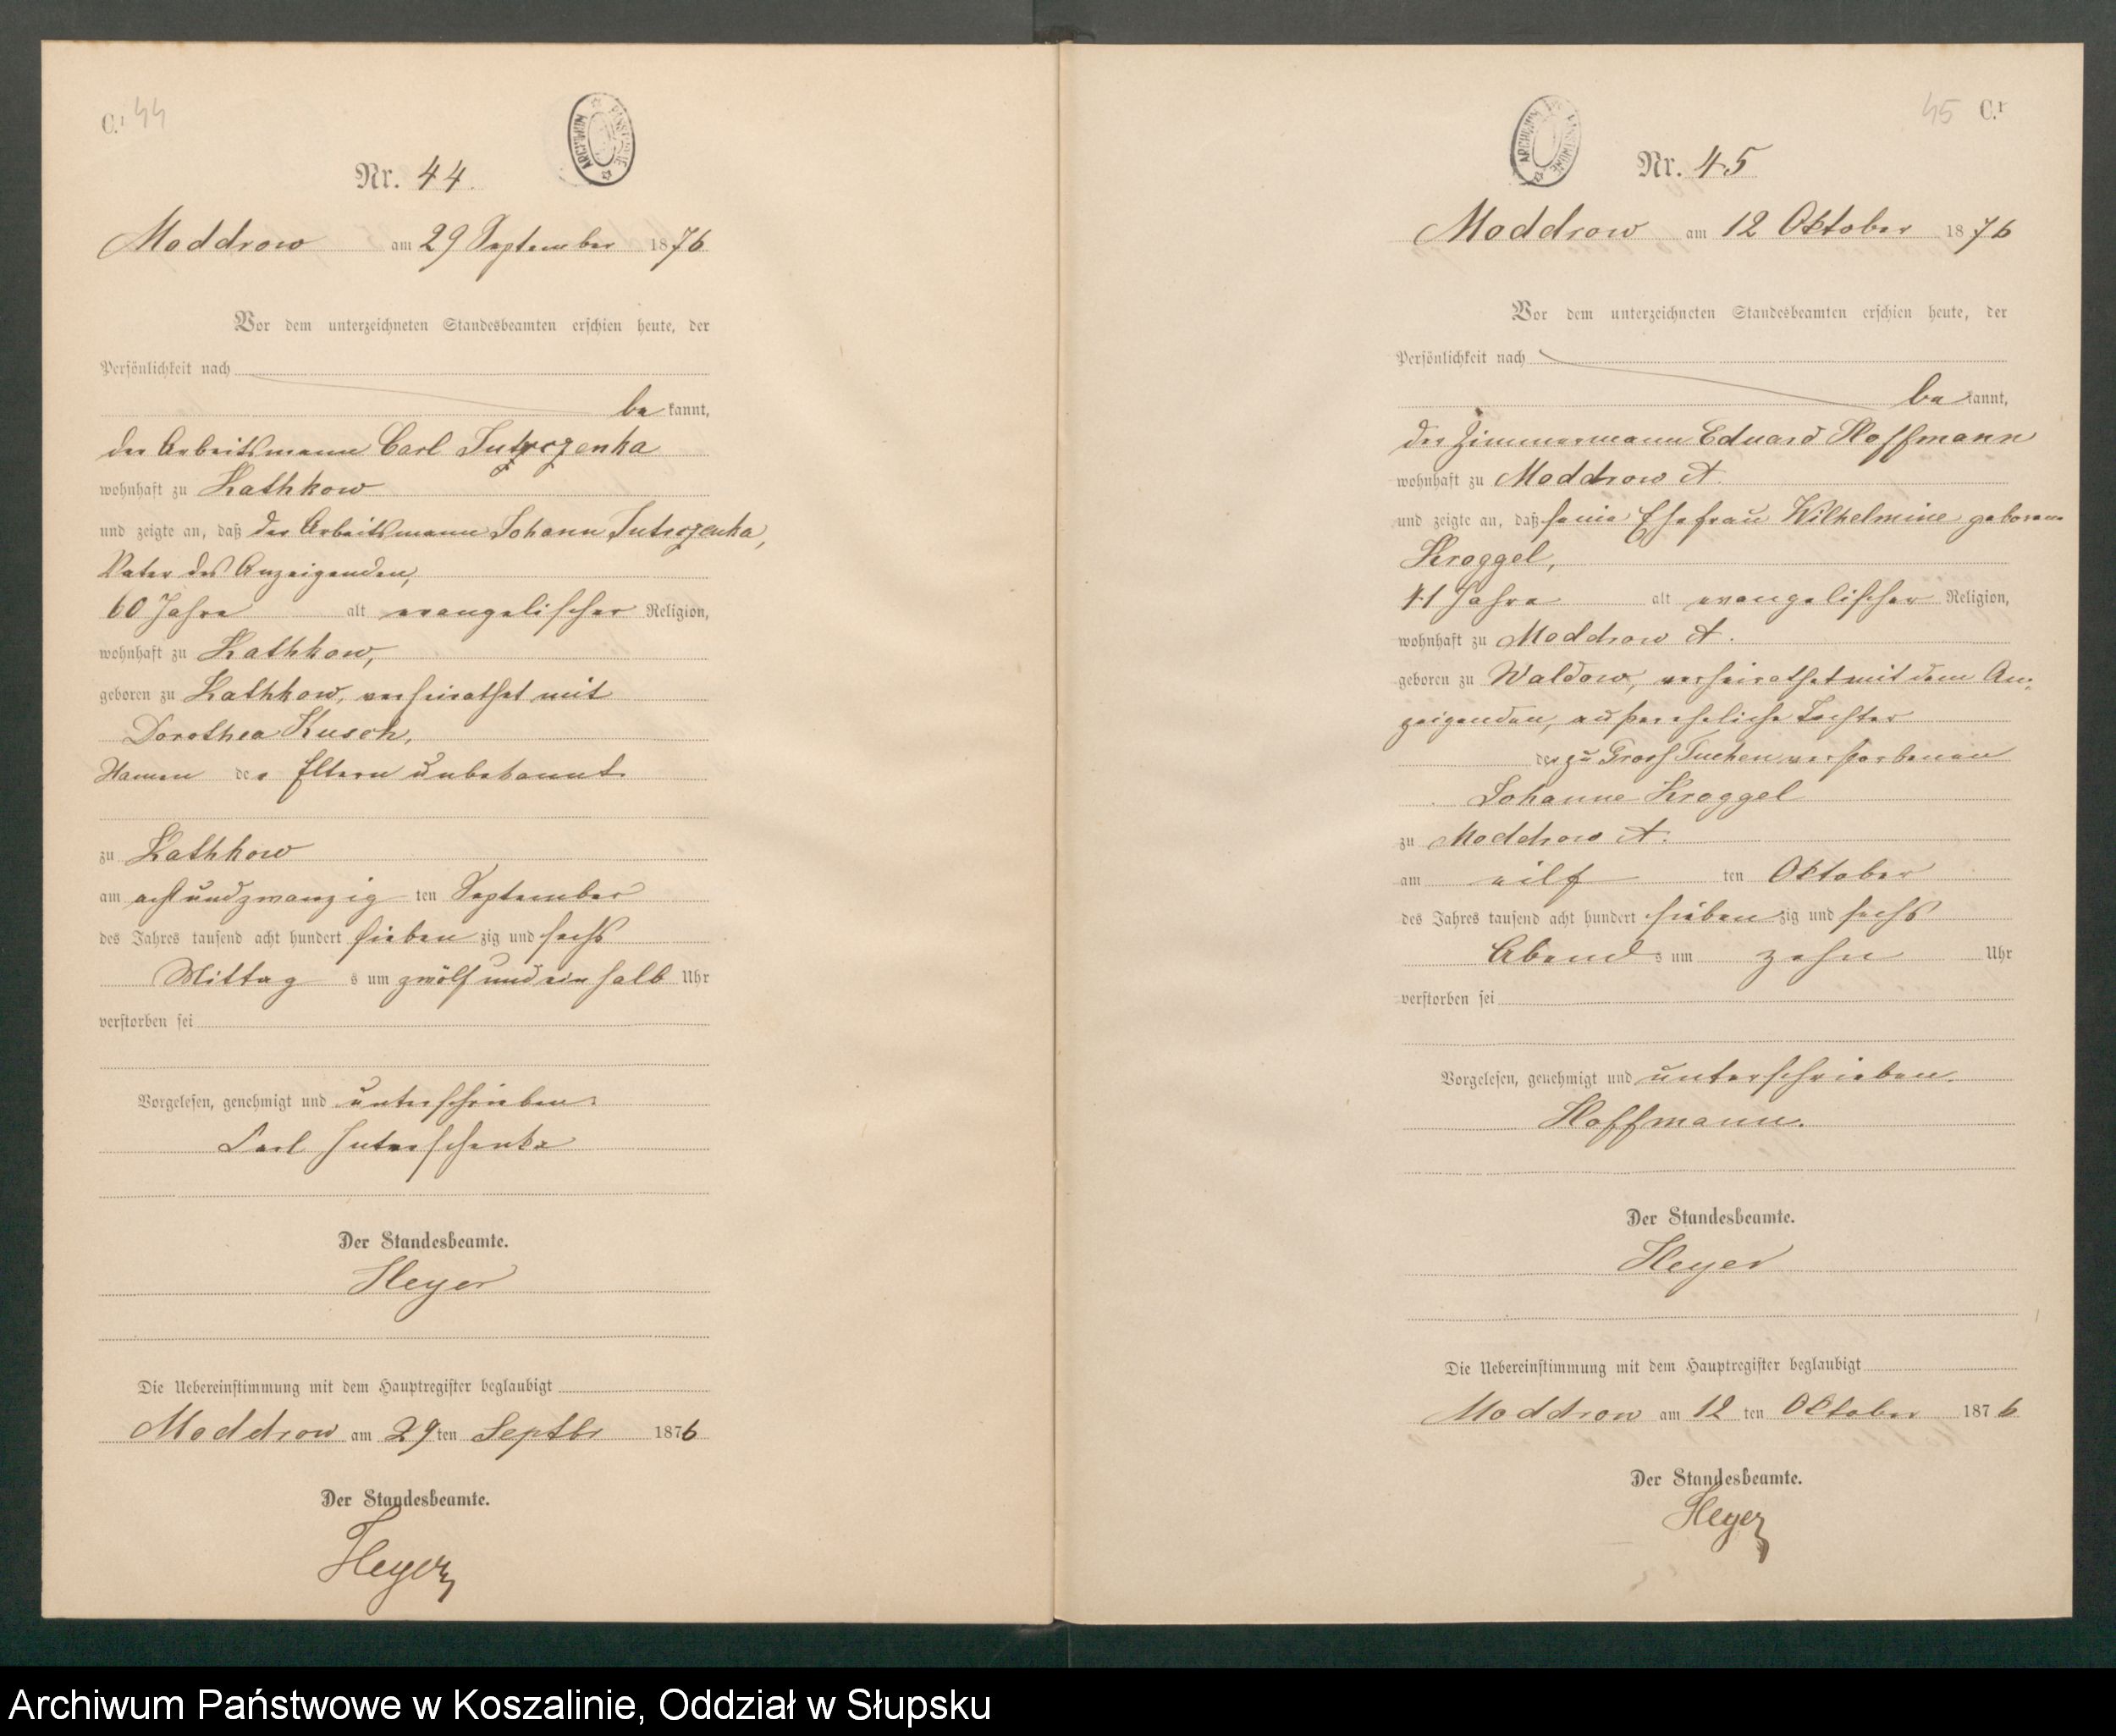 C. 44
Nr. 44.
Moddrow am 29 September 1876
Vor dem unterzeichneten Standesbeamten erschien heute, der
Persönlichkeit nach
be kannt,
der Arbeitsmann Carl
wohnhaft zu Kathkow
und zeigte an, daß der Arbeitsmann Johann Jutrozenka,
Vater des Anzeigenden,
60 Jahre alt evangelischer Religion,
wohnhaft zu Kathkow,
geboren zu Kathkow, verheirathet mit
Dorothea Kusch,
Namen der Eltern unbekannt
zu Kathkow
am achtundzwanzig ten September
des Jahres tausend acht hundert sieben zig und sechs
Mittag s um zwölf und ein halb Uhr
verstorben sei
Vorgelesen, genehmigt und unterschrieben
Carl Juterschenka
Der Standesbeamte.
Heyer
Die Uebereinstimmung mit dem Hauptregister beglaubigt
Moddrow am 29 ten Septbr 1876
Der Standesbeamte.
Heyer
45 C.
ARCHIWUM PAŃSTWOWE
Nr. 45
Moddrow am 12 Oktober 1876
Vor dem unterzeichneten Standesbeamten erschien heute, der
Persönlichkeit nach
be kannt,
der Zimmermann Eduard Hoffmann
wohnhaft zu Moddrow A.
und zeigte an, daß seine Ehefrau Wilhelmine geborene
Kroggel,
41 Jahre alt evangelischer Religion,
wohnhaft zu Moddrow A.
geboren zu Waldow, verheirathet mit dem An-
zeigenden, außereheliche Tochter
der zu Gross Tuchen verstorbenen
Johanne Kroggel
zu Moddrow A.
am eilf ten Oktober
des Jahres tausend acht hundert sieben zig und sechs
Abend s um zehn Uhr
verstorben sei
Vorgelesen, genehmigt und unterschrieben.
Hoffmann.
Der Standesbeamte.
Heyer
Die Uebereinstimmung mit dem Hauptregister beglaubigt
Moddrow am 12 ten Oktober 1876
Der Standesbeamte.
Heyer
Archiwum Państwowe w Koszalinie, Oddział w Słupsku